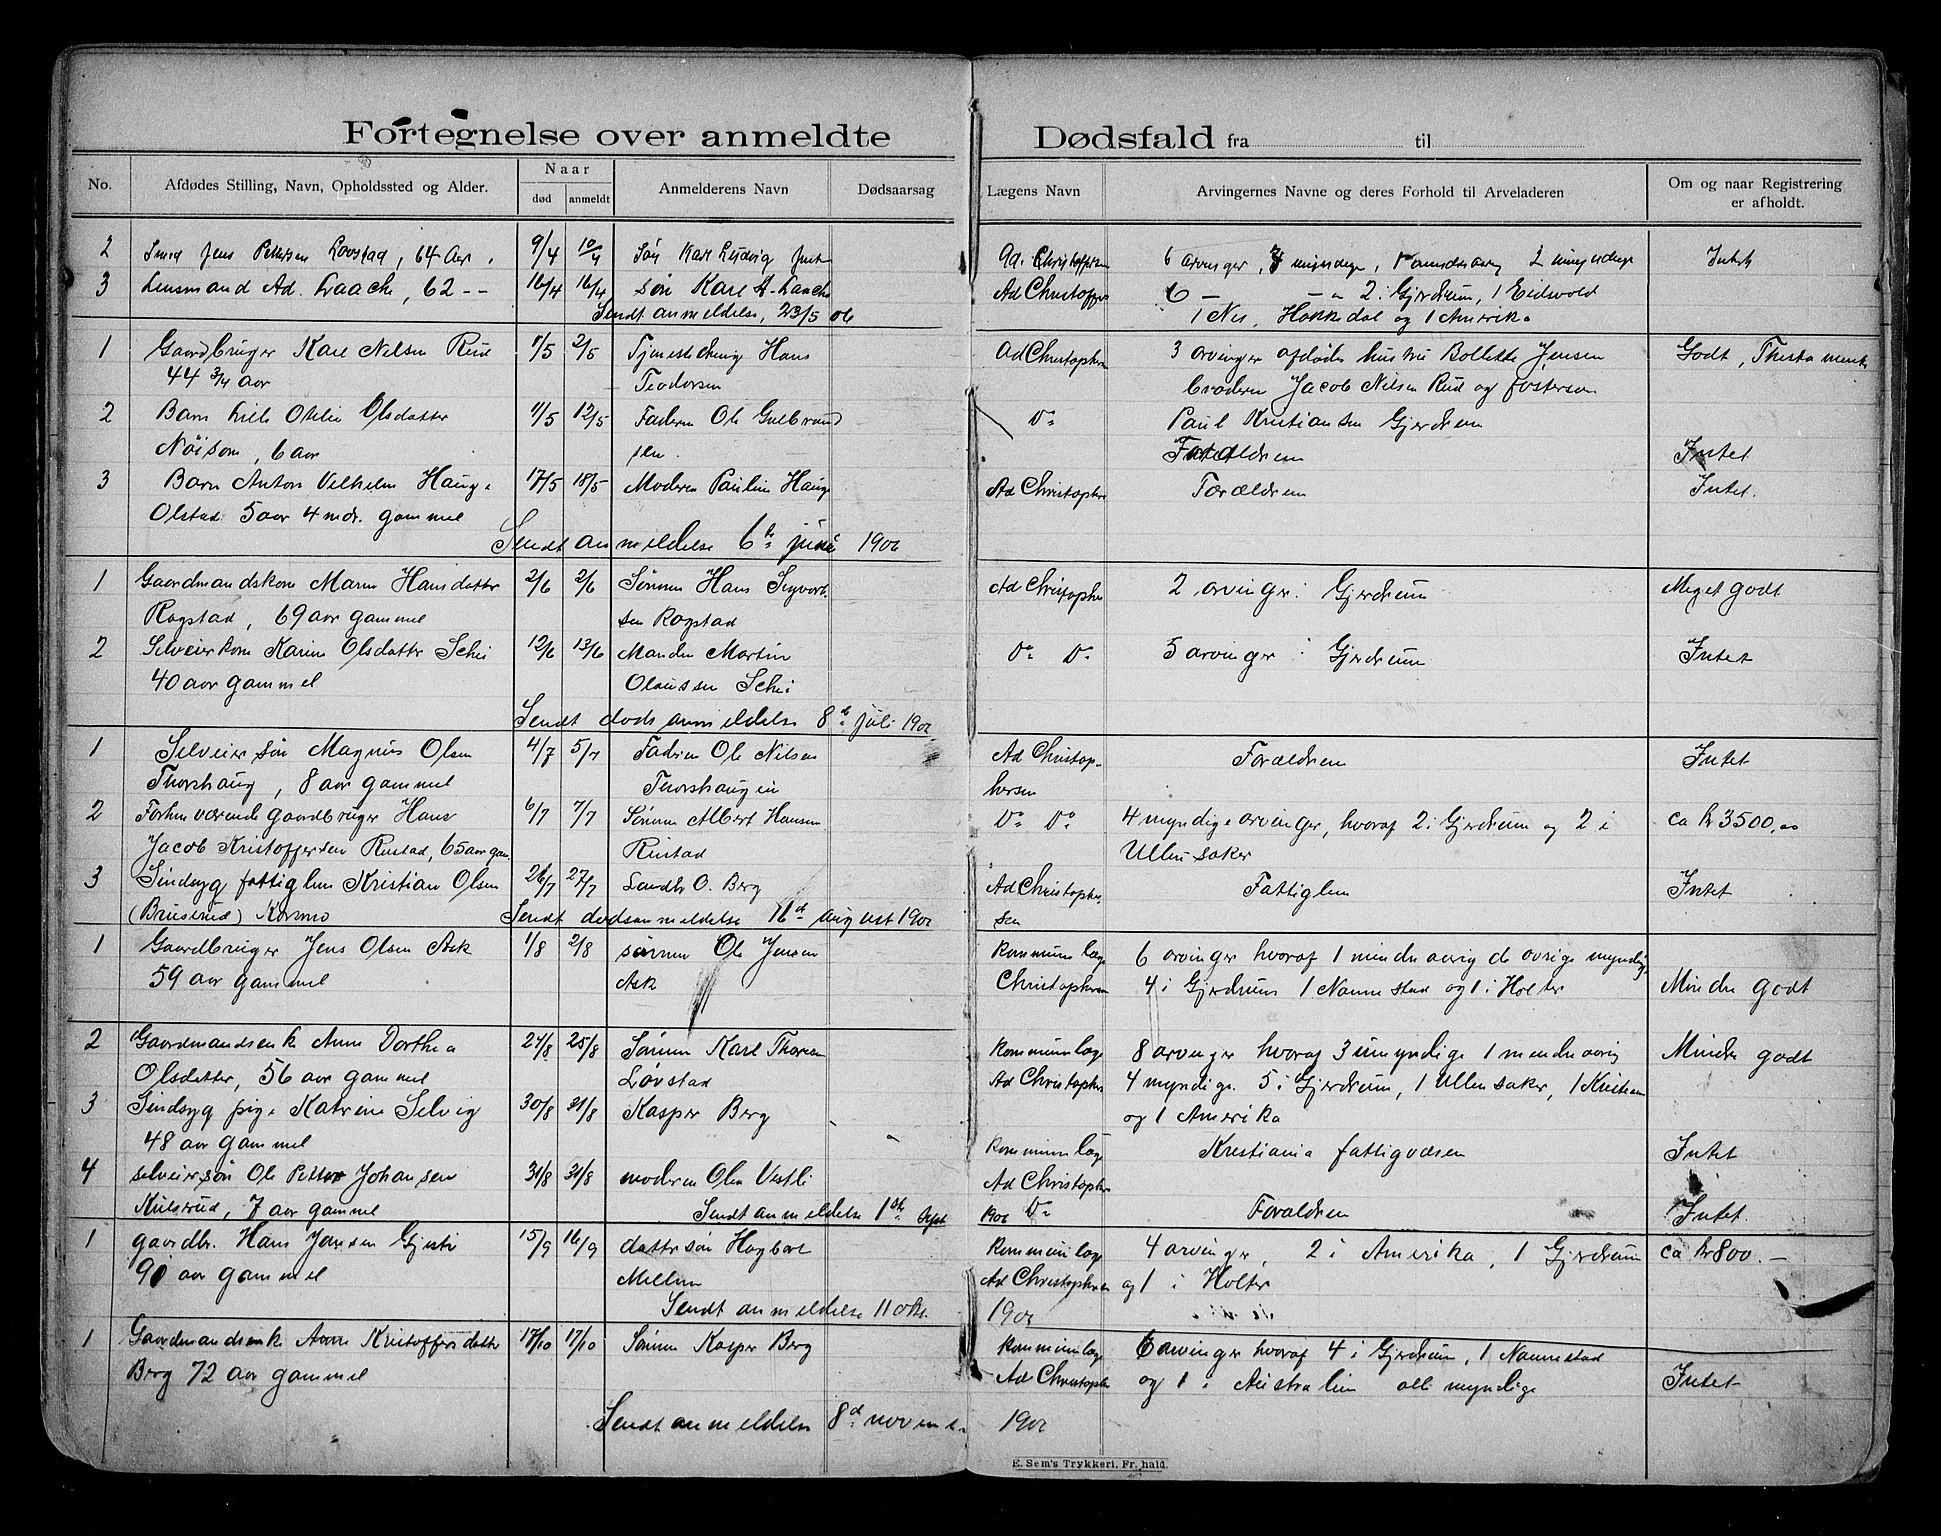 Fortegnelse over anmeldte Dødsfald fra til
No.
Afdødes Stilling, Navn, Opholdssted og Alder.
Naar
død
anmeldt
Anmelderens Navn
Dødsaarsag
Lægens Navn
Arvingernes Navne og deres Forhold til Arveladeren
Om og naar Registrering
er afholdt.
2 Smed Jens Pettersen Lovstad, 64 Aar, 9/4 10/4 Søn Karl Ludvig Ad. Christophsen 6 arvinger, 2 umyndige Intet
3 Lensmand Ad. Laache, 62 -- 16/4 16/4 søn Karl A. Laache Ad Christoffers 6 — — 2 i Gjerdrum, 1 Eidsvold
Sendt anmeldelse, 23/5 06 1 Nes, Hakkedal og 1 Amerika
1 Gaardbruger Karl Nilsen Rud 1/5 2/5 Tjenestedreng Hans Ad Christophsen 3 arvinger afdødes hustru Bollette Jensen Godt, Thestament
44 3/4 aar Teodorsen broderen Jacob Nilsen Rud og fosterson
2 Barn Lille Otilie Olsdatter 1/5 12/5 Faderen Ole Gulbrand Do Paul Kristiansen Gjerdrum
Nøisom, 6 aar sen. Forældrene Intet
3 Barn Anton Vilhelm Hauge 17/5 18/5 Moderen Pauline Hauge Ad Christophsen Forældrene Intet.
Olstad 5 aar 4 mdr. gammel
Sendt anmeldelse 6te juni 1906
1 Gaardmandskone Maren Hansdatter 2/6 2/6 Sønnen Hans Sigvart Ad Christophsen 2 arvinger i Gjerdrum Meget godt
Rogstad, 69 aar gammel sen Rogstad
2 Selveierkone Karine Olsdatter Schei 12/6 13/6 Manden Martin Do Do 5 arvinger i Gjerdrum Intet
40 aar gammel Olaussen Schei
Sendt dødsanmeldelse 8de juli 1906
1 Selveier søn Magnus Olsen 4/7 5/7 Fadren Ole Nilsen Ad Christop- Forældrene Intet
Thorshaug, 8 aar gammel Thorshaugen hersen
2 Forhenværende gaardbruger Hans 6/7 7/7 Sønnen Albert Hansen Do Do 4 myndige arvinger, hvoraf 2 i Gjerdrum og 2 i ca kr 3500,00
Jacob Kristoffersen Rustad, 65 aar gam. Rustad Ullensaker
3 Sindsyg fattiglem Kristian Olsen 26/7 27/7 Landbr O. Berg Ad Christopher- Fattiglem Intet
(Bruserud) Kosmo sen
Sendt dødsanmeldelse 11d august 1906
1 Gaardbruger Jens Olsen Ask 1/8 2/8 sønnen Ole Jensen Kommunelæge 6 arvinger hvoraf 1 mindreaarig de øvrige myndige
59 aar gammel Ask Christophersen 4 i Gjerdrum 1 Nannestad og 1 i Holter Mindre godt
2 Gaardmandsenke Anne Dorthea 24/8 25/8 Sønnen Karl Thoresen Kommunlæge 8 arvinger hvoraf 3 umyndige 1 mindreaarig Mindre godt
Olsdatter, 56 aar gammel Løvstad Ad Christophers 4 myndige. 5 i Gjerdrum, 1 Ullensaker, 1 Kristiania
og 1 Amerika
3 Sindsyg pige Katrine Selvig 30/8 31/8 Kasper Berg
48 aar gammel Kommunlæge Kristiania fattigvæsen Intet
4 selveiersøn Ole Petter Johansen 31/8 31/8 moderen Olea Vestli Ad Christophers
Kulsrud, 7 aar gammel Do Forældrene Intet.
Sendt anmeldelse 1ste Sept 1906
1 gaardbr. Hans Jensen Gjestri 15/9 16/9 dattersøn Hagbart Kommunlæge 4 arvinger, 2 i Amerika, 1 Gjerdrum ca kr 800.—
90 aar gammel Mellum Ad Christophersen og 1 i Holter
Sendt anmeldelse 11 okt. 1906
1 Gaardmandsenke Anne Kristoffersdatter 17/10 17/10 Sønnen Kasper Berg Kommunlæge 6 arvinger hvoraf 4 i Gjerdrum, 1 Nannestad
Berg 72 aar gammel Ad Christophers og 1 i Australien alle myndige Intet
Sendt anmeldelse 8d novemb. 1906
E. Sem's Trykkeri. Fr.hald.